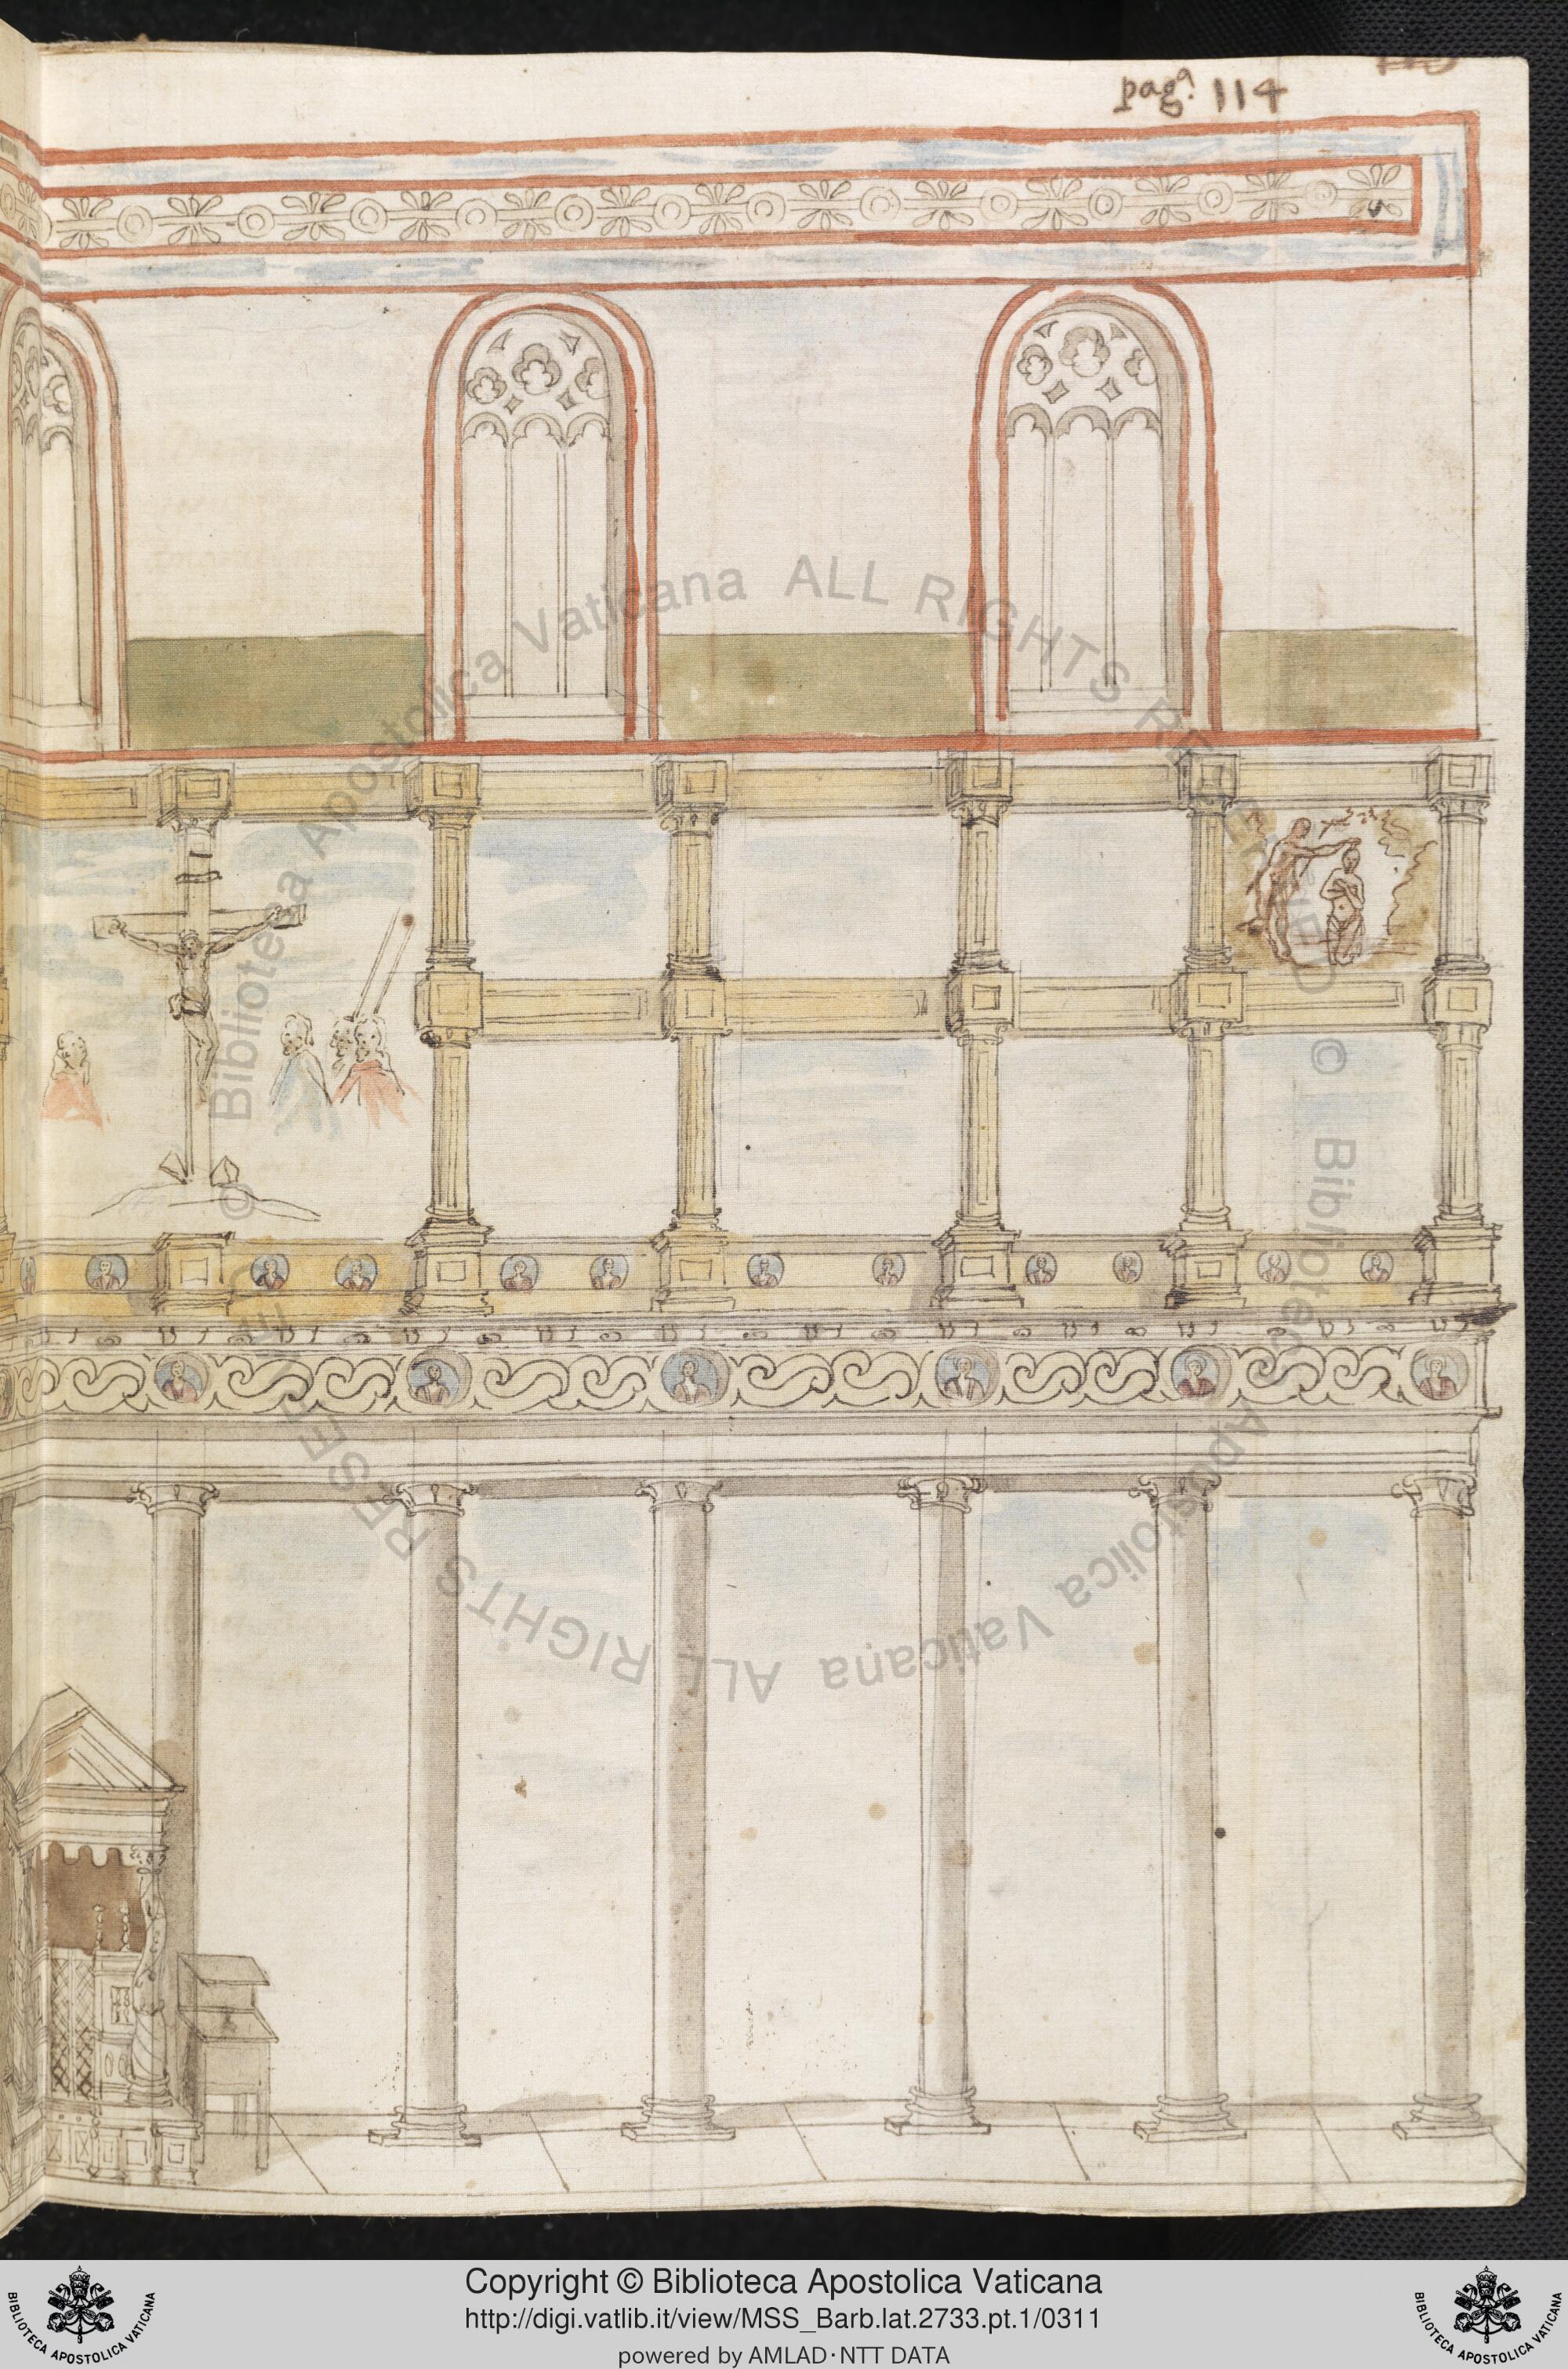 pagᵃ. 114
© Biblioteca Apostolica Vaticana ALL RIGHTS RESERVED
© Biblioteca Apostolica Vaticana ALL RIGHTS RESERVED
Copyright © Biblioteca Apostolica Vaticana
http://digi.vatlib.it/view/MSS_Barb.lat.2733.pt.1/0311
powered by AMLAD·NTT DATA
BIBLIOTECA APOSTOLICA VATICANA
BIBLIOTECA APOSTOLICA VATICANA